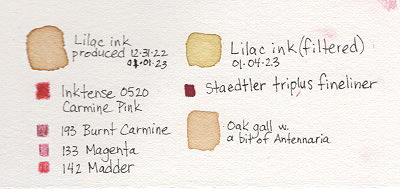 Lilac ink
produced 12.31.22
01.01.23
Inktense 0520
Carmine Pink
193 Burnt Carmine
133 Magenta
142 Madder
Lilac ink (filtered)
01.04.23
Staedtler triplus fineliner
Oak gall w.
a bit of Antennaria